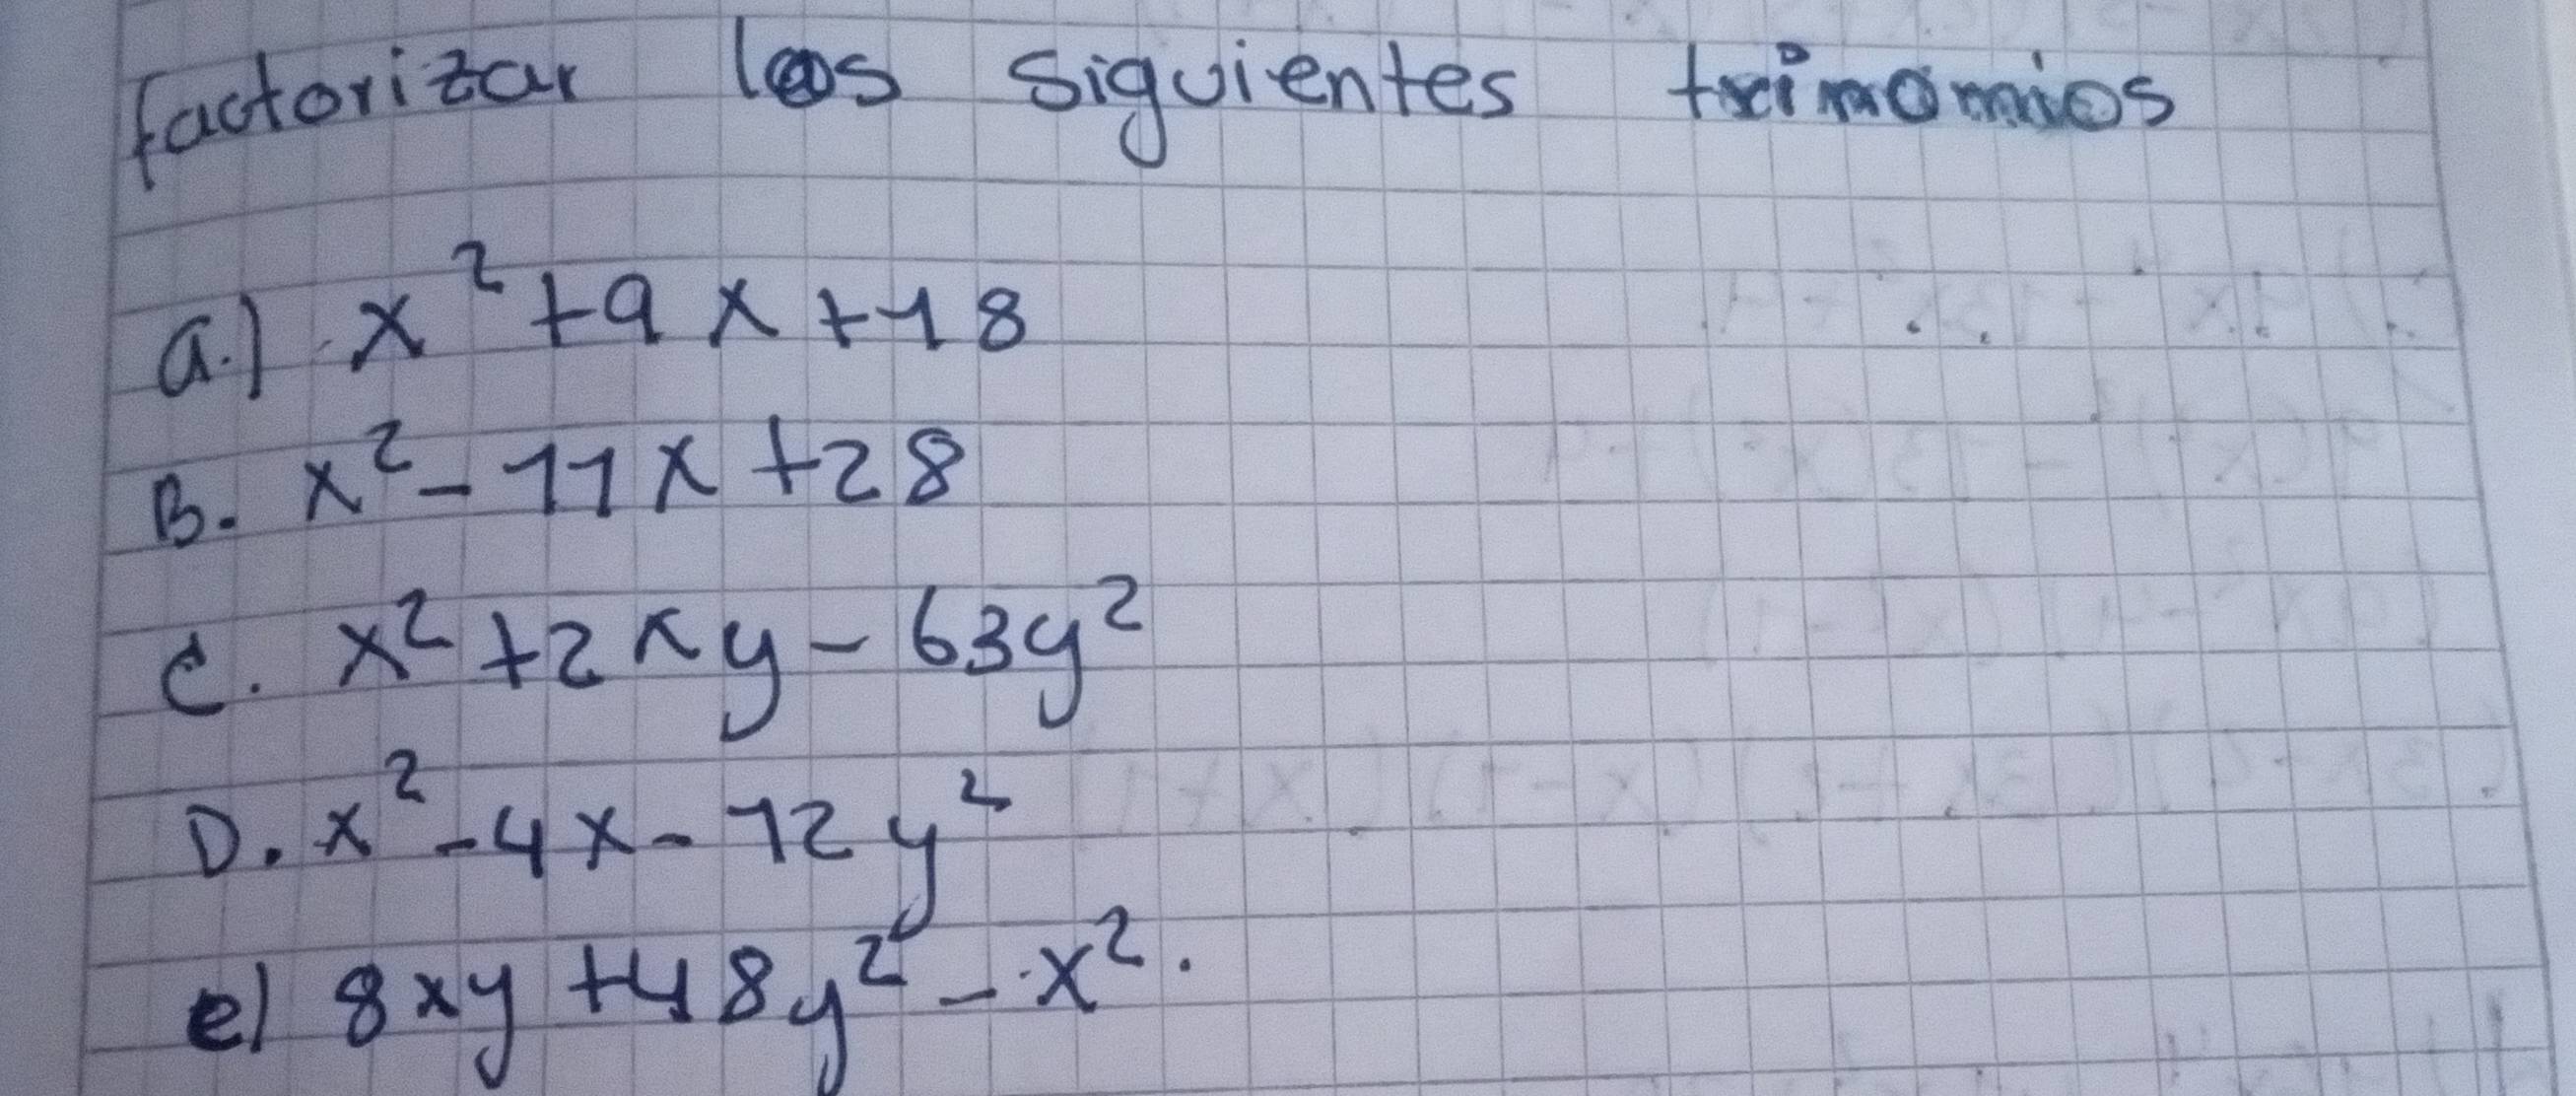 factorizar los siguientes trinomios
a.) x² + 9x + 18
B. x² - 11x + 28
C. x² + 2xy - 63y²
D. x² - 4x - 12y²
e) 8xy + 48y² - x².